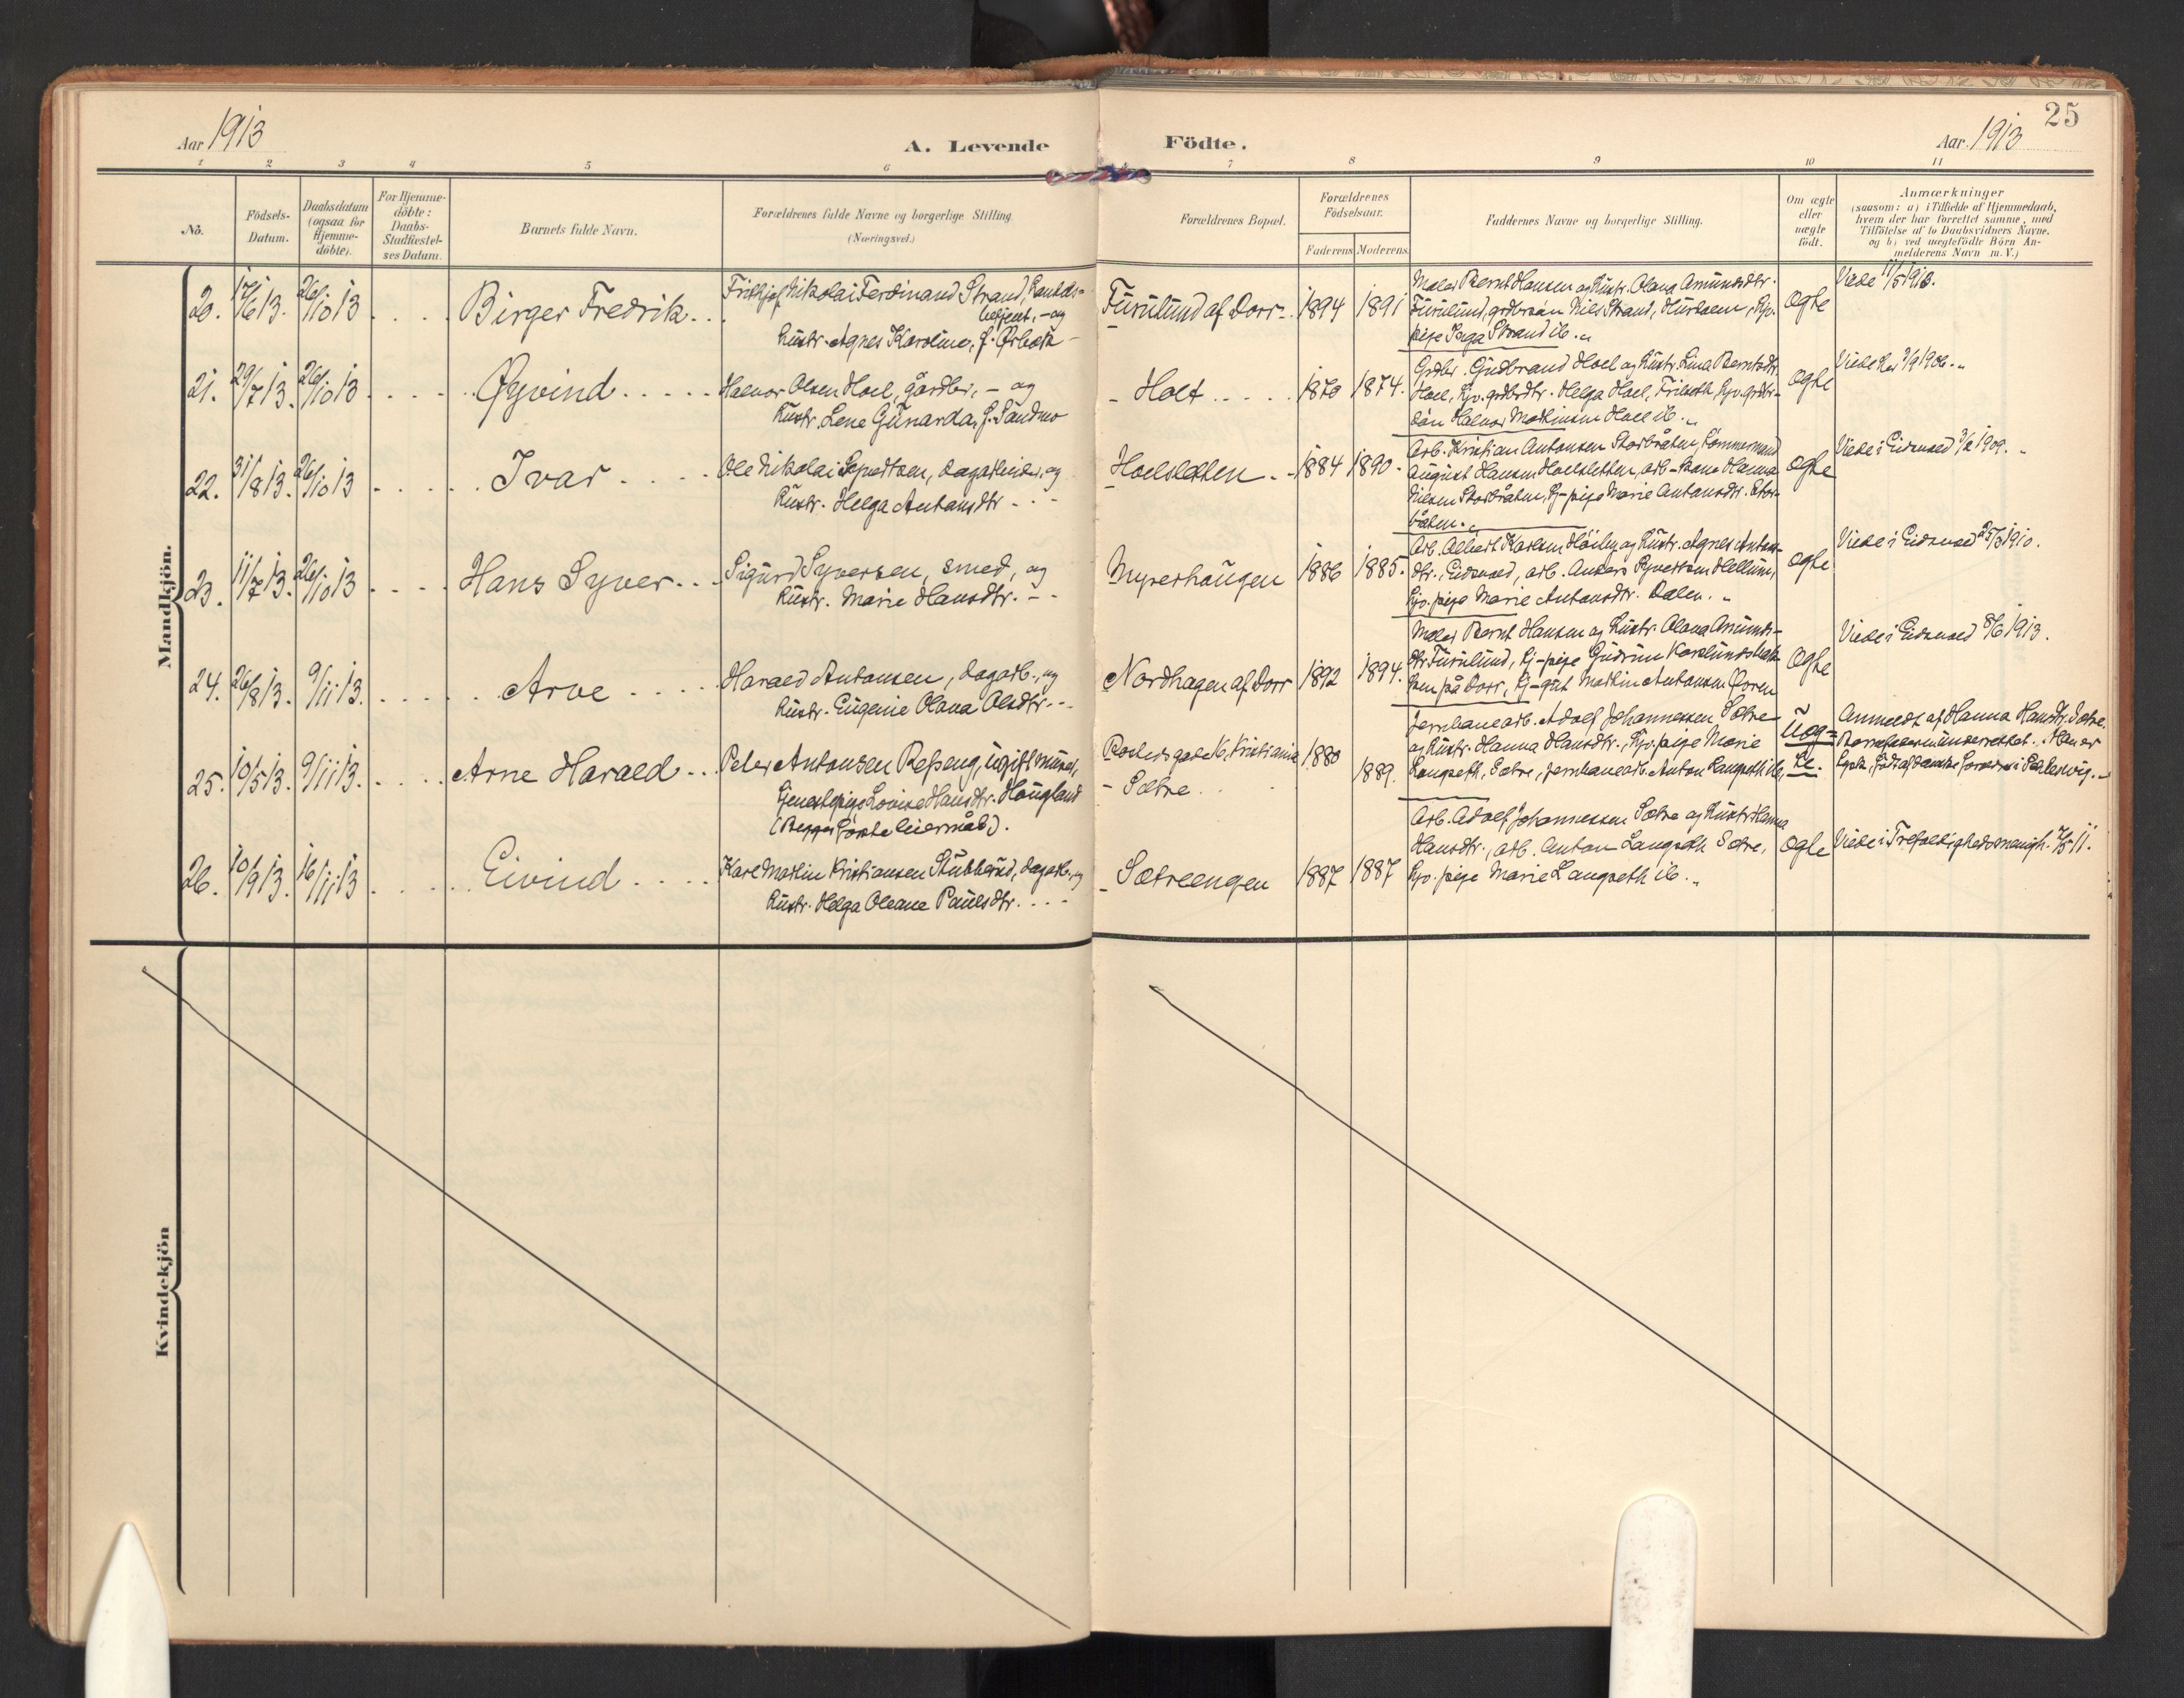 25
Aar 1913
A. Levende
Födte.
Aar 1913
1 2 3 4 5 6 7 8 9 10 11
No.
Födsels-
Datum.
Daabsdatum
(ogsaa for
Hjemme-
döbte).
For Hjemme-
döbte:
Daabs-
Stadfæstel-
ses Datum.
Barnets fulde Navn.
Forældrenes fulde Navne og borgerlige Stilling.
(Næringsvei.)
Forældrenes Bopæl.
Forældrenes
Födselsaar.
Faderens Moderens
Faddernes Navne og borgerlige Stilling.
Om ægte
eller
uægte
født.
Anmærkninger
(saasom: a) i Tilfælde af Hjemmedaab,
hvem der har forrettet samme, med
Tilföielse af to Daabsvidners Navne.
og b) ved uægtefödte Börn An-
melderens Navn m. V.)
Mandkjön.
20. 17/6 13. 26/10 13 Birger Fredrik
Frithjof Nikolai Ferdinand Strand, handels-
betjent, - og
Hustr. Agnes Karoline, f. Ørbæk
Furulund af Dorr 1894 1891
Maler Bernt Hansen og Hustr. Olava Amundsdtr.
Furulund, grdbrsøn Nils Strand, Hurdalen, Ugv.
pige Inga Strand ib.
Ogte
Viede 11/5 1913.
21. 29/7 13. 26/10 13 Øyvind
Halvor Olsen Hoel, gårdbr, - og
Hustr. Lene Gunarda, f. Sandmo
Holt 1870 1874.
Grdbr. Gudbrand Hoel og Hustr. Lina Berntsdtr.
Hoel, Ugv. grdbrdtr. Helga Hoel, Ugv. grdbr-
søn Halvor Mathinsen Hoel ib.
Ogte
Viede her 7/9 1906.
22. 31/8 13. 26/10 13 Ivar
Ole Nikolai Syvertsen, dagarbeider, og
Hustr. Helga Antonsdtr
Hoelsletten 1884 1890.
Arb. Kristian Antonsen Storbråten, Tömmermand
August Hansen Hoelsletten, arb-kone Hanna
Nilsen Storbråten, Ugv-pige Marie Antonsdtr. Stor-
bråten.
Ogte
Viede i Eidsvold 3/2 1909.
23. 11/7 13. 26/10 13 Hans Syver
Sigurd Syversen, smed, og
Hustr. Marie Hansdtr.
Myrerhaugen 1886 1885.
Arb. Albert Karlsen Höiby og Hustr. Agnes Anton-
dtr., Eidsvold, arb. Anders Syvertsen Hellum,
Ugv. pige Marie Antonsdtr. Dalen.
Ogte
Viede i Eidsvold 25/3 1910.
24. 26/8 13. 9/11 13. Arve
Harald Antonsen, dagarb., og
Hustr. Eugenie Olava Olsdtr.
Nordhagen af Dorr 1892 1894.
Maler Bernt Hansen og Hustr. Olava Amunds-
dtr. Furulund, Ugv-pige Gudrun
på Dorr, Ugv-gut Martin Antonsen
Ogte
Viede i Eidsvold 8/6 1913.
25. 10/5 13. 9/11 13. Arne Harald
Peter Antonsen Refseng, ugift murer,
tjenestepige Lovise Hansdtr. Haugland
(Begges første leiermål).
16, Kristiania 1880
Sætre 1889.
Jernbanearb. Adolf Johannessen Sætre
og Hustr. Hanna Hansdtr., Ugv. pige Marie
Langseth, Sætre, jernbanearb. Anton Langseth ib,
Uog-
te.
Anmeldt af Hanna Hansdtr. Sætre.
Barnefader underrettet. Han er
født af danske forældre i Schleswig.
26. 10/9 13. 16/11 13 Eivind
Karl Martin Kristiansen Stubberud, dagarb., og
Hustr. Helga Oleane Paulsdtr.
Sætreengen 1887 1887
Arb. Adolf Johannessen Sætre og Hustr. Hanna
Hansdtr., arb. Anton Langseth Sætre,
Ugv. pige Marie Langseth ib.
Ogte
Viede i Trefoldighedsmenigh. 7/5 11.
Kvindekjön